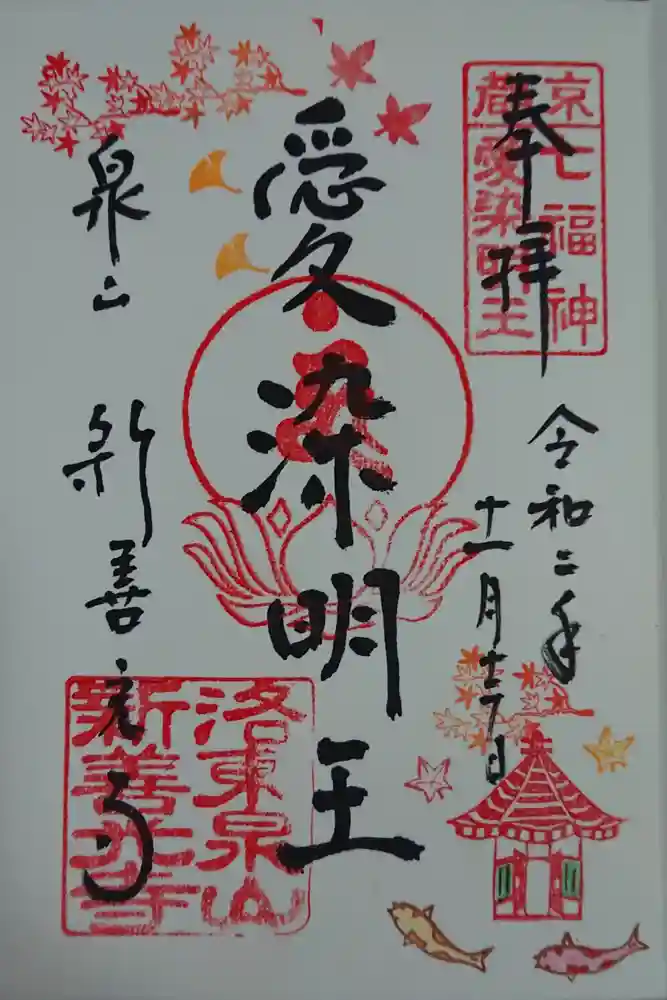 奉拝
京都
七福神
愛染明王
令和二年
十一月 日
愛染明王
泉山 新善光寺
洛東泉山
新善光寺